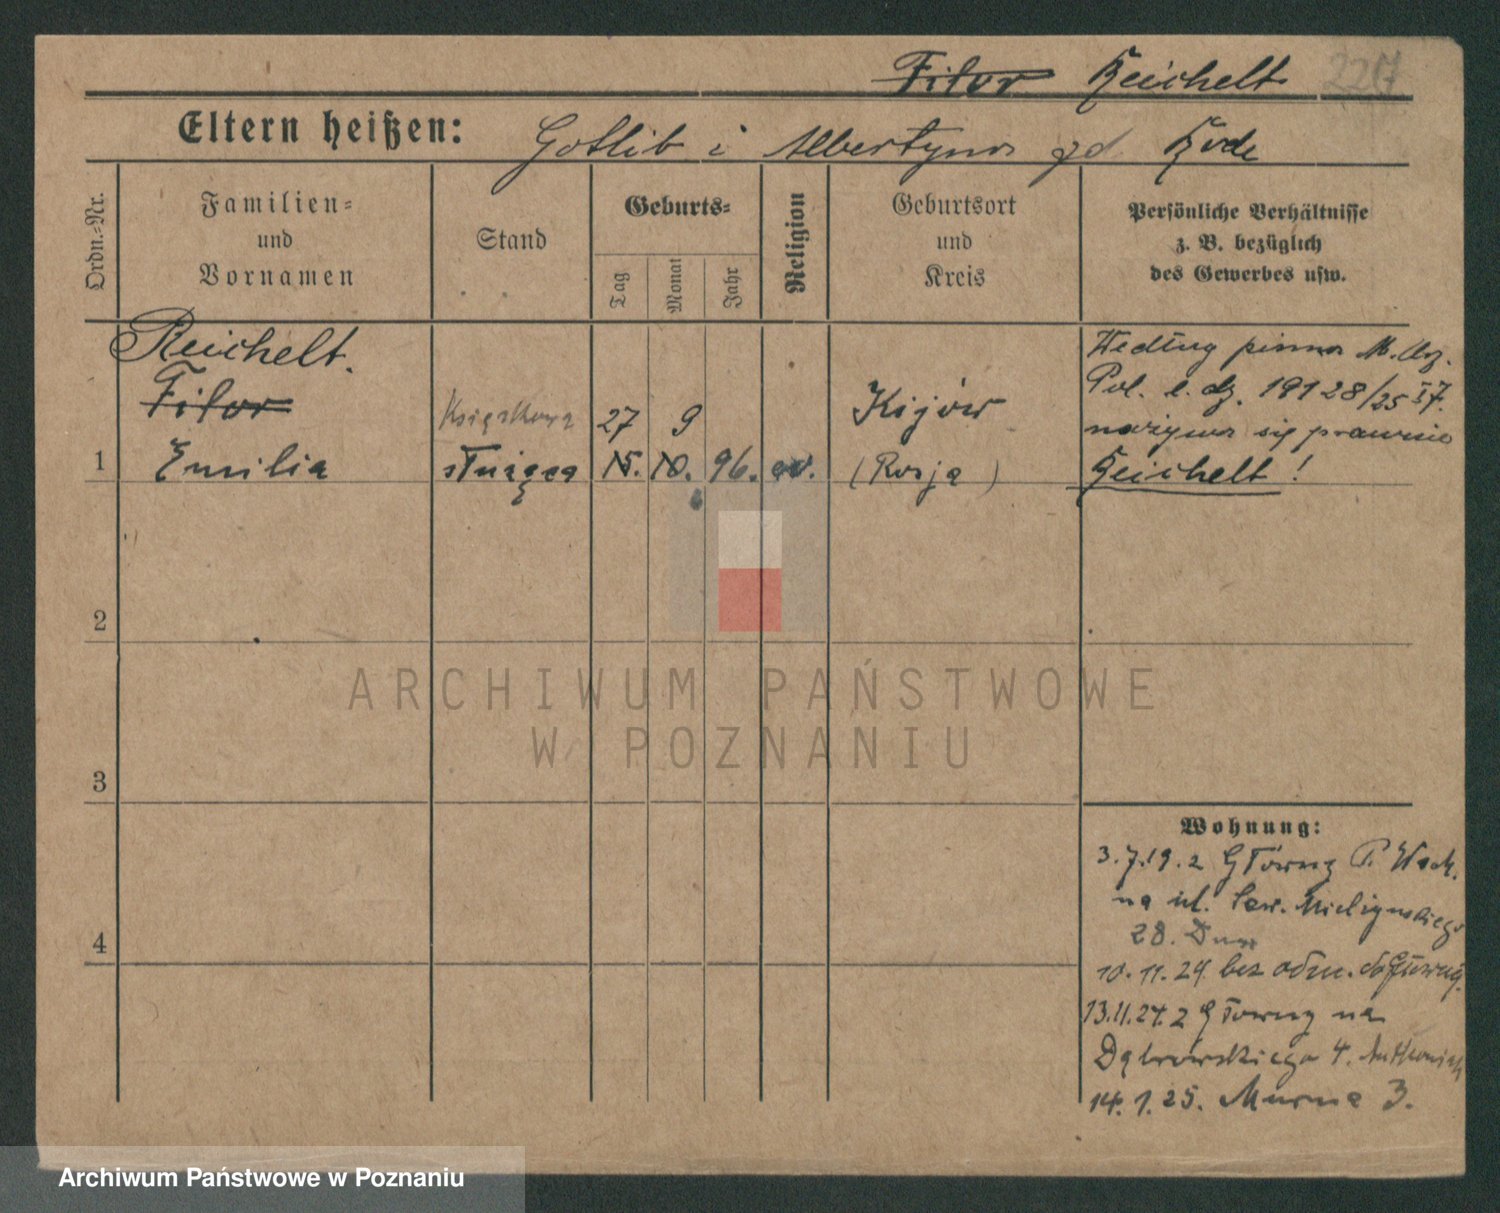 Filor Reichelt 2217
Eltern heißen: Gotlib i Albertyna zd. Rode
Ordn.-Nr.
Familien-
und
Vornamen
Stand
Geburts-
Tag
Monat
Jahr
Religion
Geburtsort
und
Kreis
Persönliche Verhältnisse
z. B. bezüglich
des Gewerbes usw.
Reichelt.
Filor
1 Emilia
Książkowa
służąca
27 9
15. 10. 96. ew.
Kijów
(Rosja)
Według pisma M. Urz.
Pol. l. dz. 19128/25 IV.
nazywa się prawnie
Reichelt!
2
3
4
Wohnung:
3.7.19. z Główny P. Wach.
na ul. Sew. Mielżyńskiego
28.
10.11.24 bez odm. do Główny.
13.11.24. z Główny na
Dąbrowskiego 4.
14.1.25. Murna 3.
ARCHIWUM PAŃSTWOWE
W POZNANIU
Archiwum Państwowe w Poznaniu